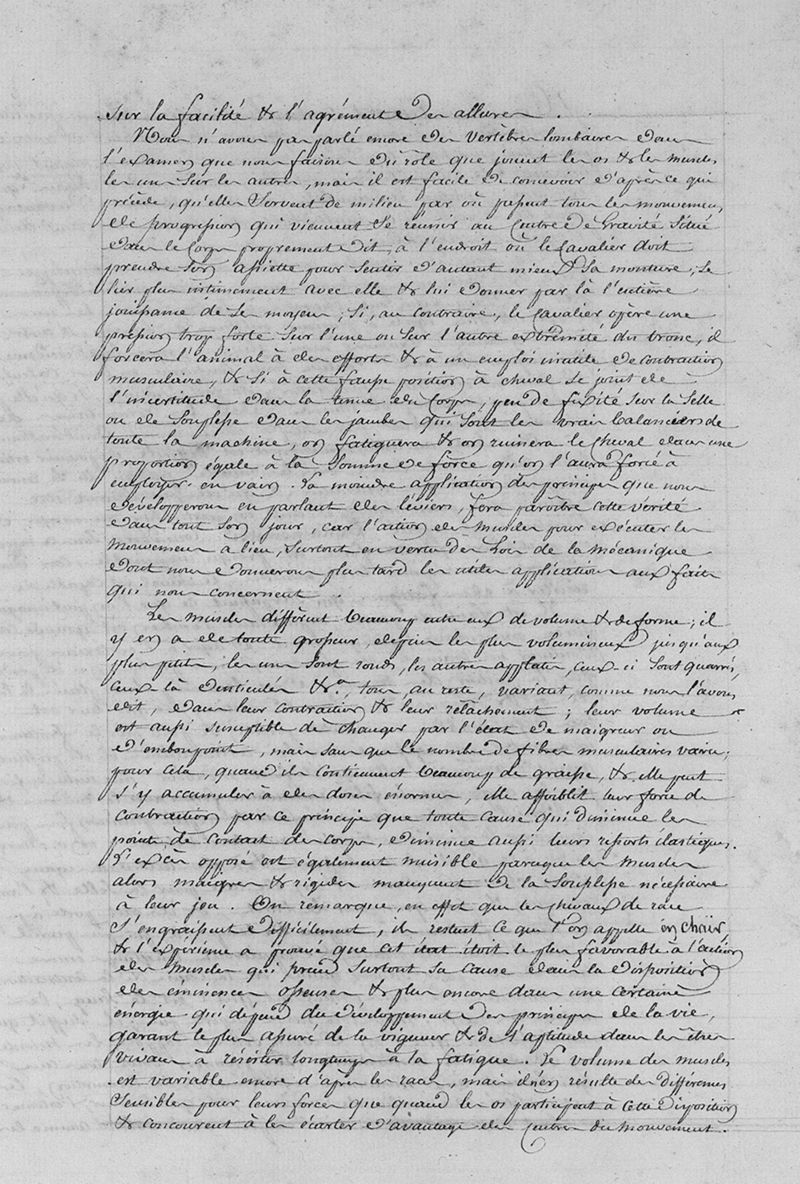 sur la facilité & l'agrément des allures.
Nous n'avons pas parlé encore des vertèbres lombaires dans
l'examen que nous faisons du rôle que jouent les os & les muscles
les uns sur les autres, mais il est facile de concevoir d'après ce qui
précède, qu'elles servent de milieu par où passent tous les mouvemens
de progression qui viennent se réunir au Centre de Gravité situé
dans le Corps proprement dit, à l'endroit où le Cavalier doit
prendre son assiette pour sentir d'autant mieux sa monture, se
lier plus intimement avec elle & lui donner par là l'entière
jouissance de ses moyens; si, au contraire, le Cavalier opère une
pression trop forte sur l'une ou sur l'autre extrémité du tronc, il
forcera l'animal à des efforts & à un emploi inutile de contraction
musculaire, & si à cette fausse position à cheval se joint de
l'incertitude dans la tenue du Corps, peu de fixité sur la selle
ou de souplesse dans les jambes qui sont les vrais balanciers de
toute la machine, on fatiguera & on ruinera le cheval dans une
proportion égale à la somme de force qu'on l'aura forcé à
employer en vain. La moindre application des principes que nous
développerons en parlant des léviers, fera paroître cette vérité
dans tout son jour, car l'action des muscles pour exécuter les
mouvemens a lieu, surtout en vertu des loix de la mécanique
dont nous donnerons plus tard les utiles applications aux faits
qui nous concernent.
Les muscles diffèrent beaucoup entre eux de volume & de forme; il
y en a de toute grosseur, depuis les plus volumineux jusqu'aux
plus petits, les uns sont ronds, les autres applatis, ceux-ci sont quarrés,
ceux là denticulés &a, tous, au reste, variant, comme nous l'avons
dit, dans leur contraction & leur relachement; leur volume
est aussi susceptible de changer par l'état de maigreur ou
d'embonpoint, mais sans que le nombre de fibres musculaires varie
pour cela, quand ils contiennent beaucoup de graisse, & elle peut
s'y accumuler à des doses énormes, elle affoiblit leur force de
contraction par ce principe que toute cause qui diminue les
points de contact des corps, diminue aussi leurs ressorts élastiques.
L'excès opposé est également nuisible parceque les muscles
alors maigres & rigides manquent de la souplesse nécessaire
à leur jeu. On remarque, en effet que les chevaux de race
s'engraissent difficilement, ils restent ce que l'on appelle en chair,
& l'expérience a prouvé que cet état étoit le plus favorable à l'action
des muscles qui prend surtout sa cause dans la disposition
des éminences osseuses & plus encore dans une certaine
énergie qui dépend du développement des principes de la vie,
garant le plus assuré de la vigueur & de l'aptitude dans les êtres
vivans à résister longtemps à la fatigue. Le volume des muscles
est variable encore d'après les races, mais il n'en résulte des différences
sensibles pour leurs forces que quand les os participent à cette disposition
& concourent à les écarter d'avantage des centres du mouvement.